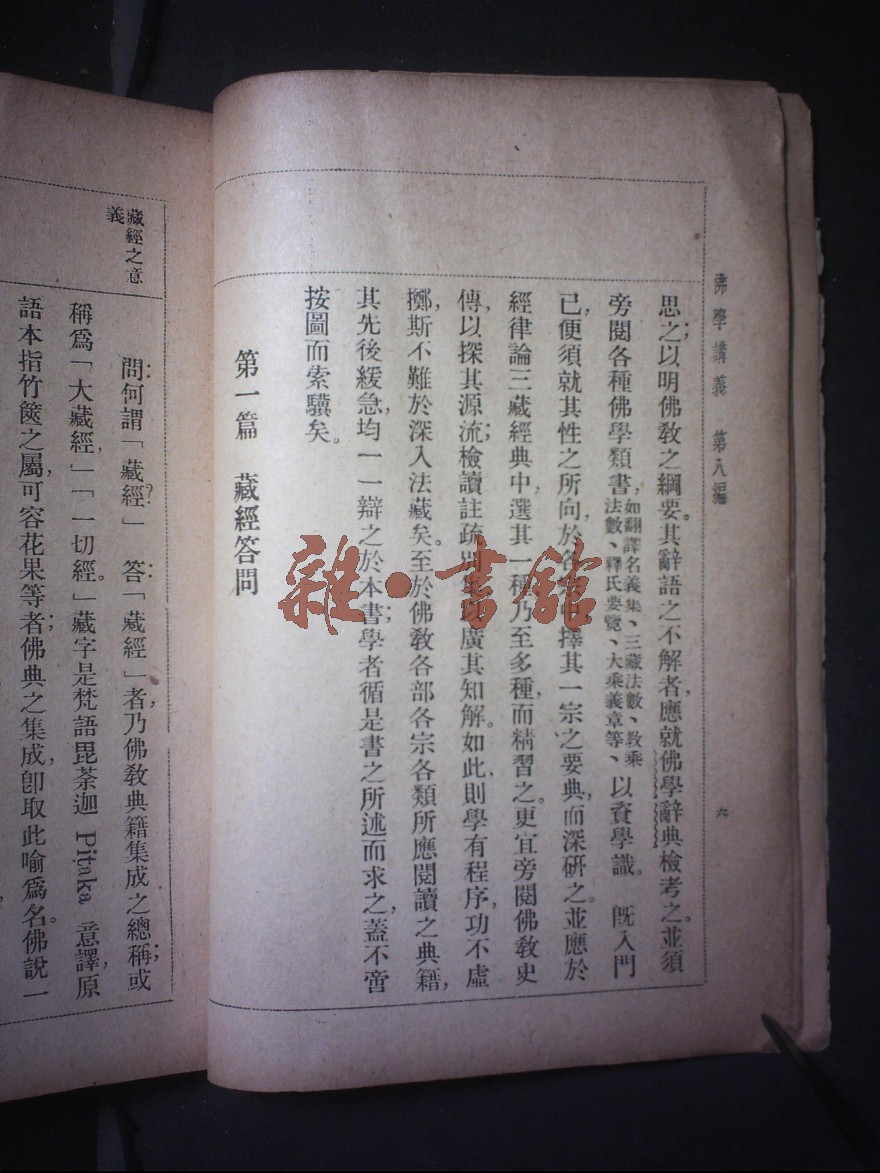 佛學講義 第八編
六
思之；以明佛教之綱要。其辭語之不解者，應就佛學辭典檢考之。並須
旁閱各種佛學類書，如翻譯名義集、三藏法數、教乘法數、釋氏要覽、大乘義章等、以資學識。 旣入門
已，便須就其性之所向，於各宗中擇其一宗之要典，而深硏之。並應於
經律論三藏經典中，選其一種乃至多種，而精習之。更宜旁閱佛敎史
傳，以探其源流；檢讀註疏別集，以廣其知解。如此，則學有程序，功不虛
擲，斯不難於深入法藏矣。至於佛敎各部各宗各類所應閱讀之典籍，
其先後緩急，均一一辯之於本書；學者循是書之所述而求之，蓋不啻
按圖而索驥矣。
第一篇 藏經答問
藏經之意義
問：何謂「藏經」？ 答：「藏經」者，乃佛敎典籍集成之總稱；或
稱爲「大藏經，」「一切經。」藏字是梵語毘荼迦 Piṭaka 意譯，原
語本指竹篋之屬，可容花果等者；佛典之集成，卽取此喻爲名。佛說一
雜·書館